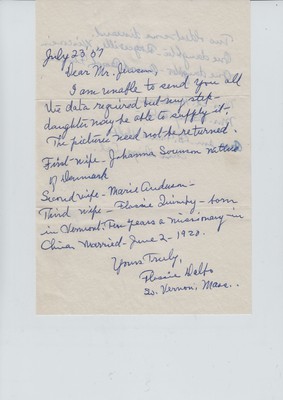 July 23 '57
Dear Mr. Jensen,
I am unable to send you all
the data required but my step-
daughter may be able to supply it.
The pictures need not be returned.
First-wife- Johanna Sorenson native
of Denmark
Second wife- Marie Anderson-
Third wife- Flossie Quimby- born
in Vermont. Ten years a missionary in
China. Married- June 2- 1928.
Yours Truly,
Flossie
W. Vernon, Mass.